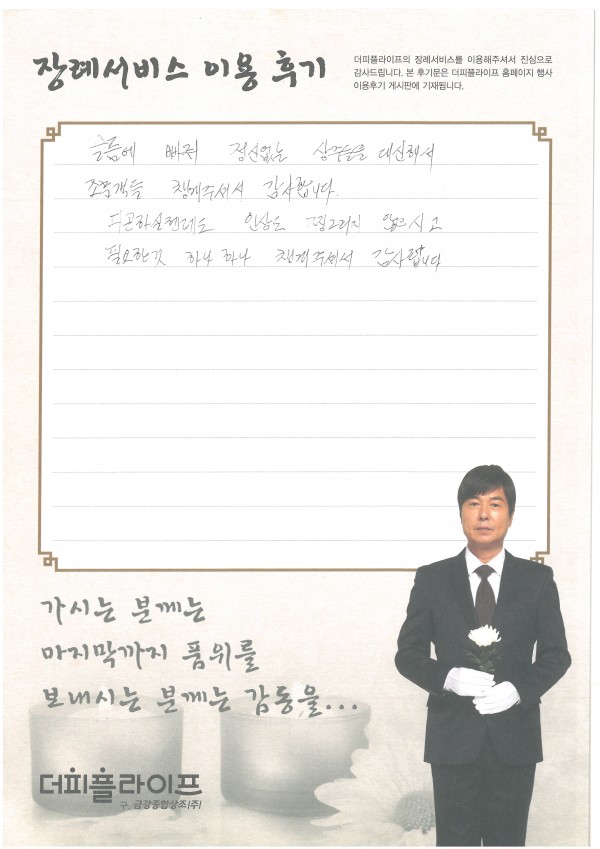 장례서비스 이용 후기
더피플라이프의 장례서비스를 이용해주셔서 진심으로
감사드립니다. 본 후기문은 더피플라이프 홈페이지 행사
이용후기 게시판에 기재됩니다.
슬픔에 빠져 정신없는 상주들을 대신해서
조문객들 챙겨주셔서 감사합니다.
피곤하실텐데도 인상도 찡그리지 않으시고
필요한것 하나 하나 챙겨주셔서 감사합니다
가시는 분께는
마지막까지 품위를
보내시는 분께는 감동을...
더피플라이프
구. 금강종합상조(주)